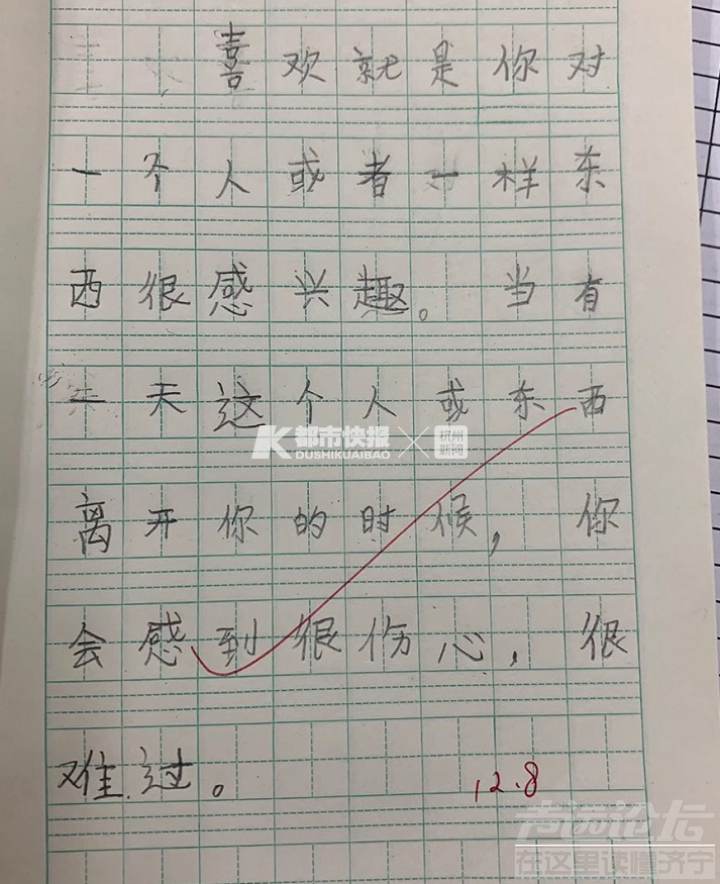 喜欢就是你对
一个人或者一样东
西很感兴趣。当有
一天这个人或东西
K都市快报 × 杭州新闻
DUSHIKUAIBAO
离开你的时候，你
会感到很伤心，很
难过。
12.8
在这里读懂济宁